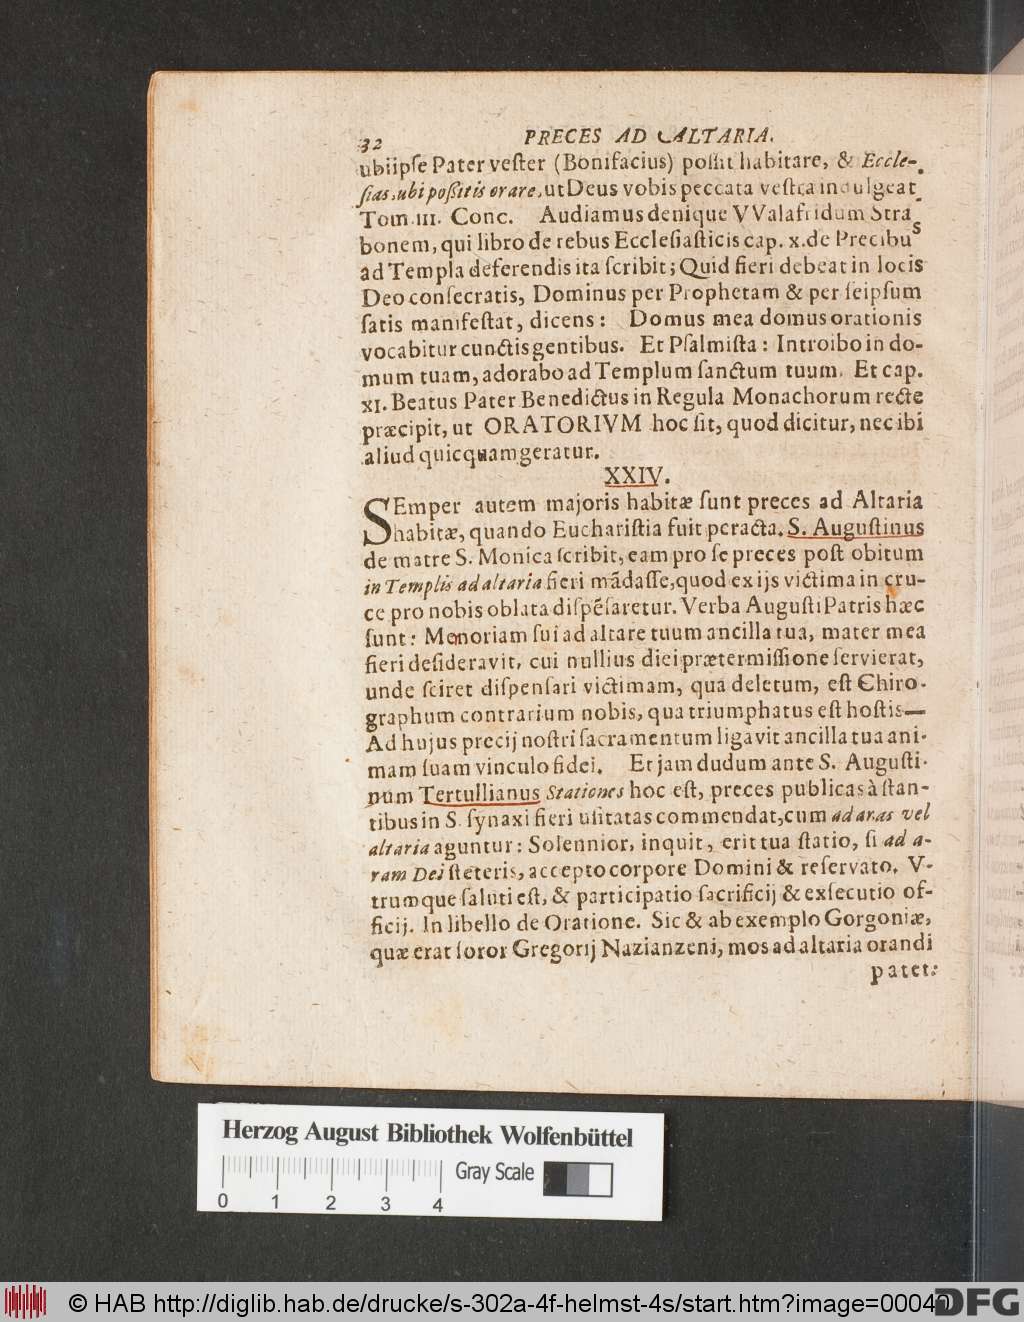 32 PRECES AD ALTARIA.
ubi ipſe Pater veſter (Bonifacius) poſſit habitare, & Eccle-
ſias, ubi poßitis orare, ut Deus vobis peccata veſtra indulgeat.
Tom. III. Conc. Audiamus denique VValafridum Stra
bonem, qui libro de rebus Eccleſiaſticis cap. x. de Precibus
ad Templa deferendis ita ſcribit; Quid fieri debeat in locis
Deo conſecratis, Dominus per Prophetam & per ſeipſum
ſatis manifeſtat, dicens: Domus mea domus orationis
vocabitur cunctis gentibus. Et Pſalmiſta: Introibo in do-
mum tuam, adorabo ad Templum ſanctum tuum. Et cap.
XI. Beatus Pater Benedictus in Regula Monachorum recte
præcipit, ut ORATORIVM hoc ſit, quod dicitur, nec ibi
aliud quicquam geratur.
XXIV.
SEmper autem majoris habitæ ſunt preces ad Altaria
habitæ, quando Euchariſtia fuit peracta. S. Auguſtinus
de matre S. Monica ſcribit, eam pro ſe preces poſt obitum
in Templis ad altaria fieri mãdaſſe, quod ex ijs victima in cru-
ce pro nobis oblata diſpẽſaretur. Verba Auguſti Patris hæc
ſunt: Memoriam ſui ad altare tuum ancilla tua, mater mea
fieri deſideravit, cui nullius diei prætermiſſione ſervierat,
unde ſciret diſpenſari victimam, qua deletum, eſt Chiro-
graphum contrarium nobis, qua triumphatus eſt hoſtis—
Ad hujus precij noſtri ſacramentum ligavit ancilla tua ani-
mam ſuam vinculo fidei. Et jam dudum ante S. Auguſti-
num Tertullianus Stationes hoc eſt, preces publicas à ſtan-
tibus in S. ſynaxi fieri uſitatas commendat, cum ad aras vel
altaria aguntur: Solennior, inquit, erit tua ſtatio, ſi ad a-
ram Dei ſteteris, accepto corpore Domini & reſervato. V-
trumque ſaluti eſt, & participatio ſacrificij & exſecutio of-
ficij. In libello de Oratione. Sic & ab exemplo Gorgoniæ,
quæ erat ſoror Gregorij Nazianzeni, mos ad altaria orandi
patet:
Herzog August Bibliothek Wolfenbüttel
Gray Scale
0 1 2 3 4
© HAB http://diglib.hab.de/drucke/s-302a-4f-helmst-4s/start.htm?image=00040
DFG